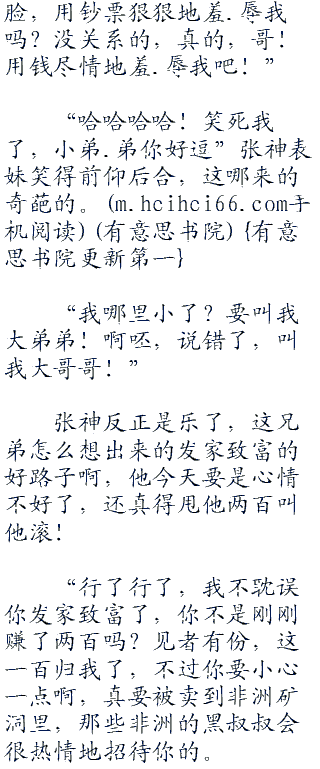 脸，用钞票狠狠地羞.辱我
吗？没关系的，真的，哥！
用钱尽情地羞.辱我吧！”
“哈哈哈哈！笑死我
了，小弟.弟你好逗”张神表
妹笑得前仰后合，这哪来的
奇葩的。(m.hcihci66.com手
机阅读)(有意思书院){有意
思书院更新第一}
“我哪里小了？要叫我
大弟弟！啊呸，说错了，叫
我大哥哥！”
张神反正是乐了，这兄
弟怎么想出来的发家致富的
好路子啊，他今天要是心情
不好了，还真得甩他两百叫
他滚！
“行了行了，我不耽误
你发家致富了，你不是刚刚
赚了两百吗？见者有份，这
一百归我了，不过你要小心
一点啊，真要被卖到非洲矿
洞里，那些非洲的黑叔叔会
很热情地招待你的。